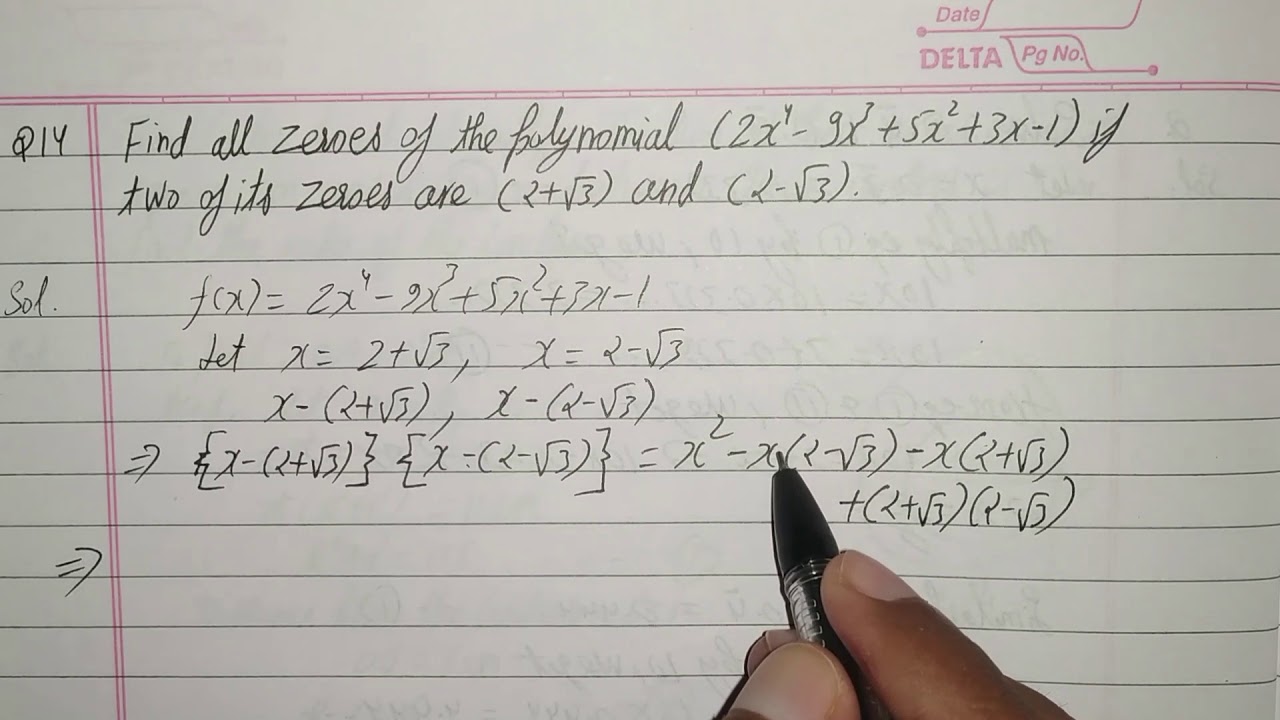 Date
DELTA Pg No.
Q14 Find all zeroes of the polynomial (2x⁴ - 9x³ + 5x² + 3x - 1) if
two of its zeroes are (2+√3) and (2-√3).
Sol. f(x) = 2x⁴ - 9x³ + 5x² + 3x - 1
Let x = 2+√3, x = 2-√3
x-(2+√3), x-(2-√3)
⇒ {x-(2+√3)} {x-(2-√3)} = x² - x(2-√3) - x(2+√3)
+(2+√3)(2-√3)
⇒